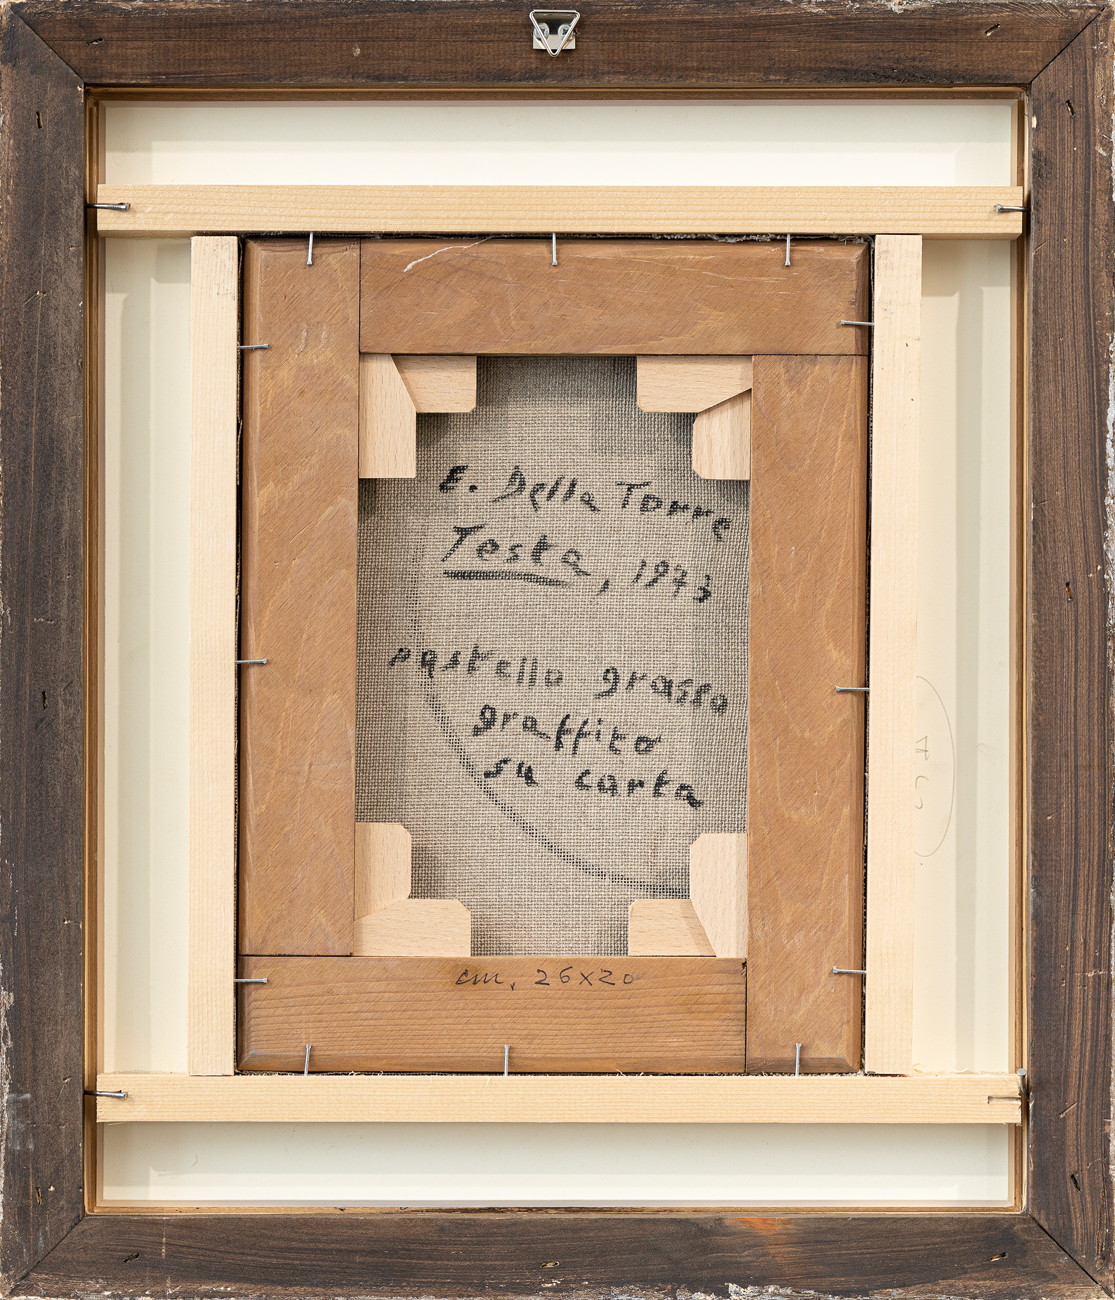 E. Della Torre
Testa, 1973
pastello grasso
graffito
su carta
cm. 26x20